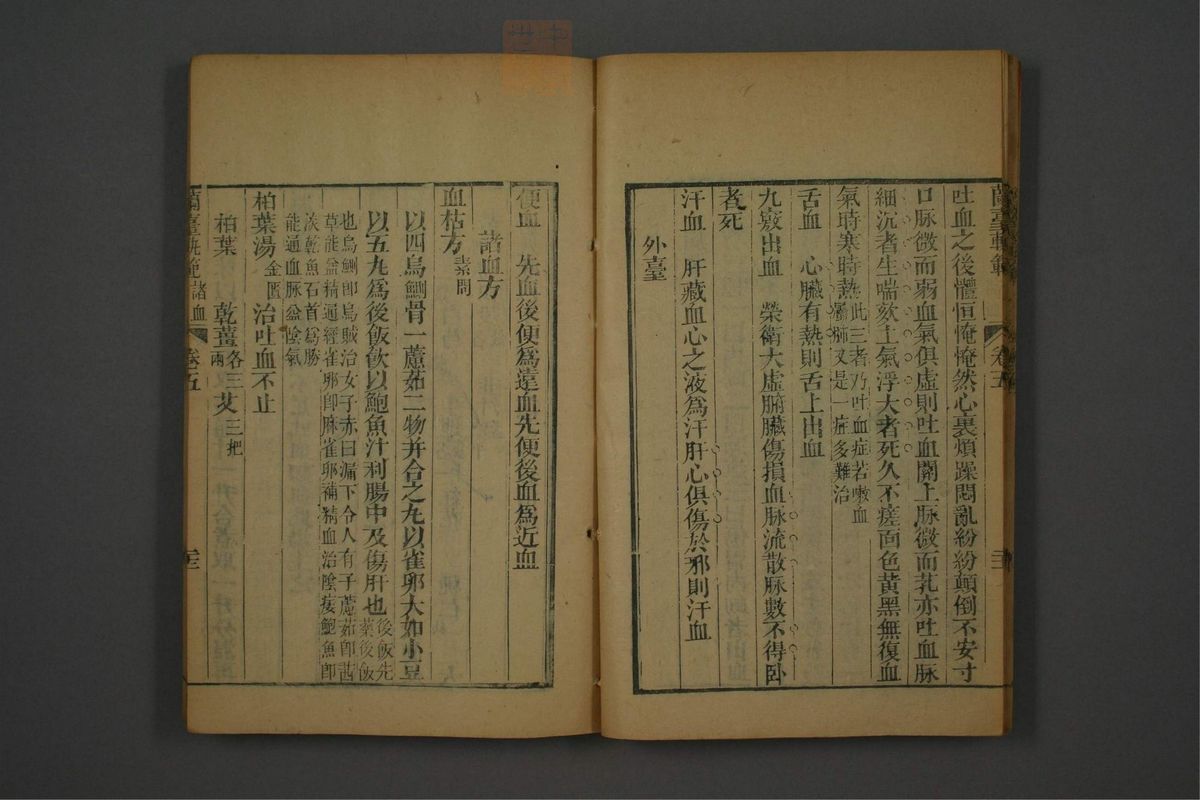 蘭臺軌範 卷五
吐血之後體恒奄奄然心裏煩躁悶亂紛紛顛倒不安寸
口脉微而弱血氣俱虛則吐血關上脉微而芤亦吐血脉
細沉者生喘欬上氣浮大者死久不瘥面色黃黑無復血
氣時寒時熱此三者乃吐血症若嗽血
屬肺又是一症多難治
舌血 心臟有熱則舌上出血
九竅出血 榮衛大虛腑臟傷損血脉流散脉數不得臥
者死
汗血 肝藏血心之液爲汗肝心俱傷於邪則汗血
外臺
便血 先血後便爲遠血先便後血爲近血
諸血方
血枯方素問
以四烏鰂骨一藘茹二物并合之丸以雀卵大如小豆
以五丸爲後飯飲以鮑魚汁利腸中及傷肝也後飯先
藥後飯
也烏鰂卽烏賊治女子赤白漏下令人有子藘茹卽茜
草能益精通經雀卵卽麻雀卵補精血治陰痿鮑魚卽
淡乾魚石首爲勝
能通血脉益陰氣
柏葉湯金匱 治吐血不止
柏葉 乾薑各三
兩 艾三把
蘭臺軌範 諸血 卷五